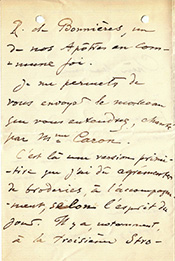 R. de Bonnières, un
de nos Apôtres en Com-
mune foi.
Je me permets de
vous envoyer le morceau
que vous entendrez, chanté
par Mme Caron.
C'est là une version primi-
tive que j'ai dû agrémenter
de broderies à l'accompagne-
ment, selon l'esprit du
jour. Il y a, notamment,
à la Troisième Stro-